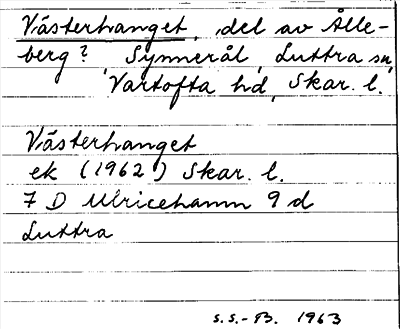 Västerhanget, del av Ålle-
berg?, Synnerål, Luttra sn,
Vartofta hd, Skar. l.
Västerhanget
ek (1962) Skar. l.
7 D Ulricehamn 9 d
Luttra
S.S.-B. 1963